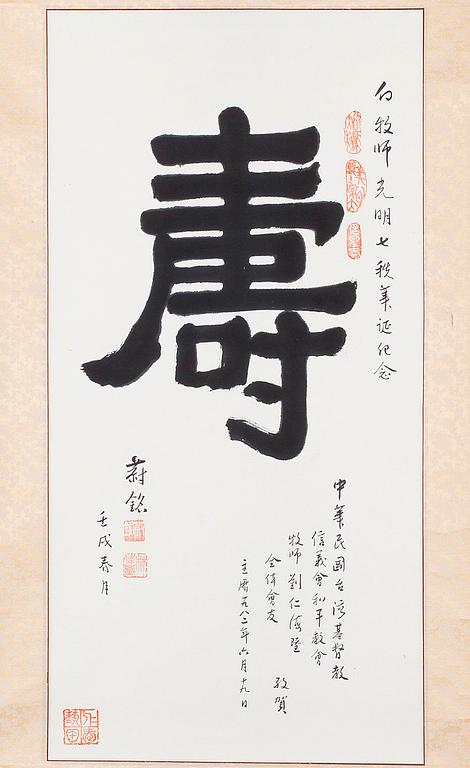 白牧師光明七秩華誕紀念
壽
中華民國台灣基督教
信義會和平教會
牧師劉仁海暨
全体會友
敬賀
主曆一九八二年六月十九日
蔚銘
壬戌春月